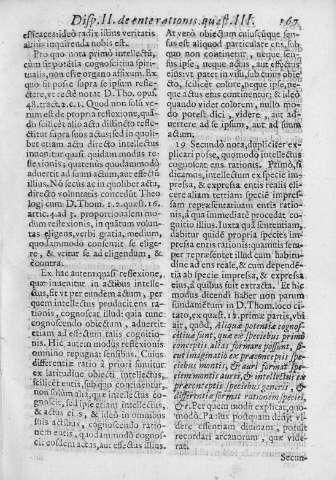 Disp. II. de ente rationis. quæst. III. 167
efficeas ideò radix illius veritatis
altius inquirenda nobis est.
Pro quo nota primò intellectũ,
cum sit potẽtia cognoscitiua spiritualis,
non esse organo affixum. Ex
quo fit posse supra se ipsum reflectere,
vt rectè notat D. Tho. opus.
48. tract. 2. c. 1. Quod non solũ verum
est de propria reflexione, quãdo
scilicet alio actu distincto reflectitur
supra suos actus; sed in quolibet
etiam actu directo intellectus
innuitur quasi quidam modus reflexionis;
quatenus quodammodò
aduertit ad suum actum, aut effectũ
illius. Nõ secus ac in quolibet actu,
directo voluntatis concedũt Theologi
cum D. Thom. 1. 2. quæst. 16.
artic. 4. ad 3. proportionalem modum
reflexionis, in quãtum voluntas
eligens, verbi gratia, medium,
quodammodò consentit se eligere,
& vtitur se ad eligendum, &
è contra.
Ex hac autem quasi reflexione,
quæ inuenitur in actibus intellectus,
fit vt per eundem actum, per
quem intellectus producit ens rationis,
cognoscat illud: quia tunc
cognoscendo obiectum, aduertit
etiam ad effectum talis cognitionis.
Hic autem modus reflexionis
omnino repugnat sensibus. Cuius
differentiæ ratio à priori sumitur
ex latitudine obiecti intellectus,
scilicet entis, sub quo continetur,
non solùm alia, quæ intellectus cognoscit,
sed ipse etiam intellectus,
& actus eius, & ideò in omnibus
suis actibus, quodammodò reflectit
cognoscens actus, aut effectus illius.
At verò obiectum cuiuscunque sensus
est aliquod particulare ens, sub
quo non continetur, neque sensus
ipse, neque actus, aut effectus
eius: vt patet in visu, sub cuius obiecto,
scilicet colore, neque ipse, neque
actus eius continentur; & ideò
quando videt colorem, nullo modo
potest dici, videre, aut aduertere
ad se ipsum, aut ad suum
actum.
19 Secundò nota, dupliciter explicari
posse, quomodo intellectus
cognoscat ens rationis. Primò, si
dicamus, intellectum ex specie impressa,
& expressa entis realis elicere
aliam tertiam speciem impressam
repræsentatiuam entis rationis,
à qua immediatè procedat cognitio
illius. Iuxta quã sententiam,
dabitur quidẽ propria species impressa
entis rationis: quamuis semper
representet illud cum habitudine
ad ens reale, & cum dependẽtia
ab specie impressa, & expressa
eius, à quibus fuit extracta. Et hic
modus dicendi habet non paruum
fundamẽtum in D. Thom. loco citato,
ex quæst. 12. primæ partis, vbi
ait, quòd, Aliquæ potentiæ cognoscitiuæ
sunt, quæ ex speciebus primò
conceptis alias formare possunt, sicut
imaginatio ex præconceptis speciebus
montis, & auri format speciem
montis aurei, & intellectus ex
præconceptis speciebus generis, &
differentiæ format rationem speciei,
&c. Per quem modũ explicat, quomodo
Paulus postquam desijt videre
essentiam diuinam, potuit
recordari arcanorum, quæ viderat.
Secun-